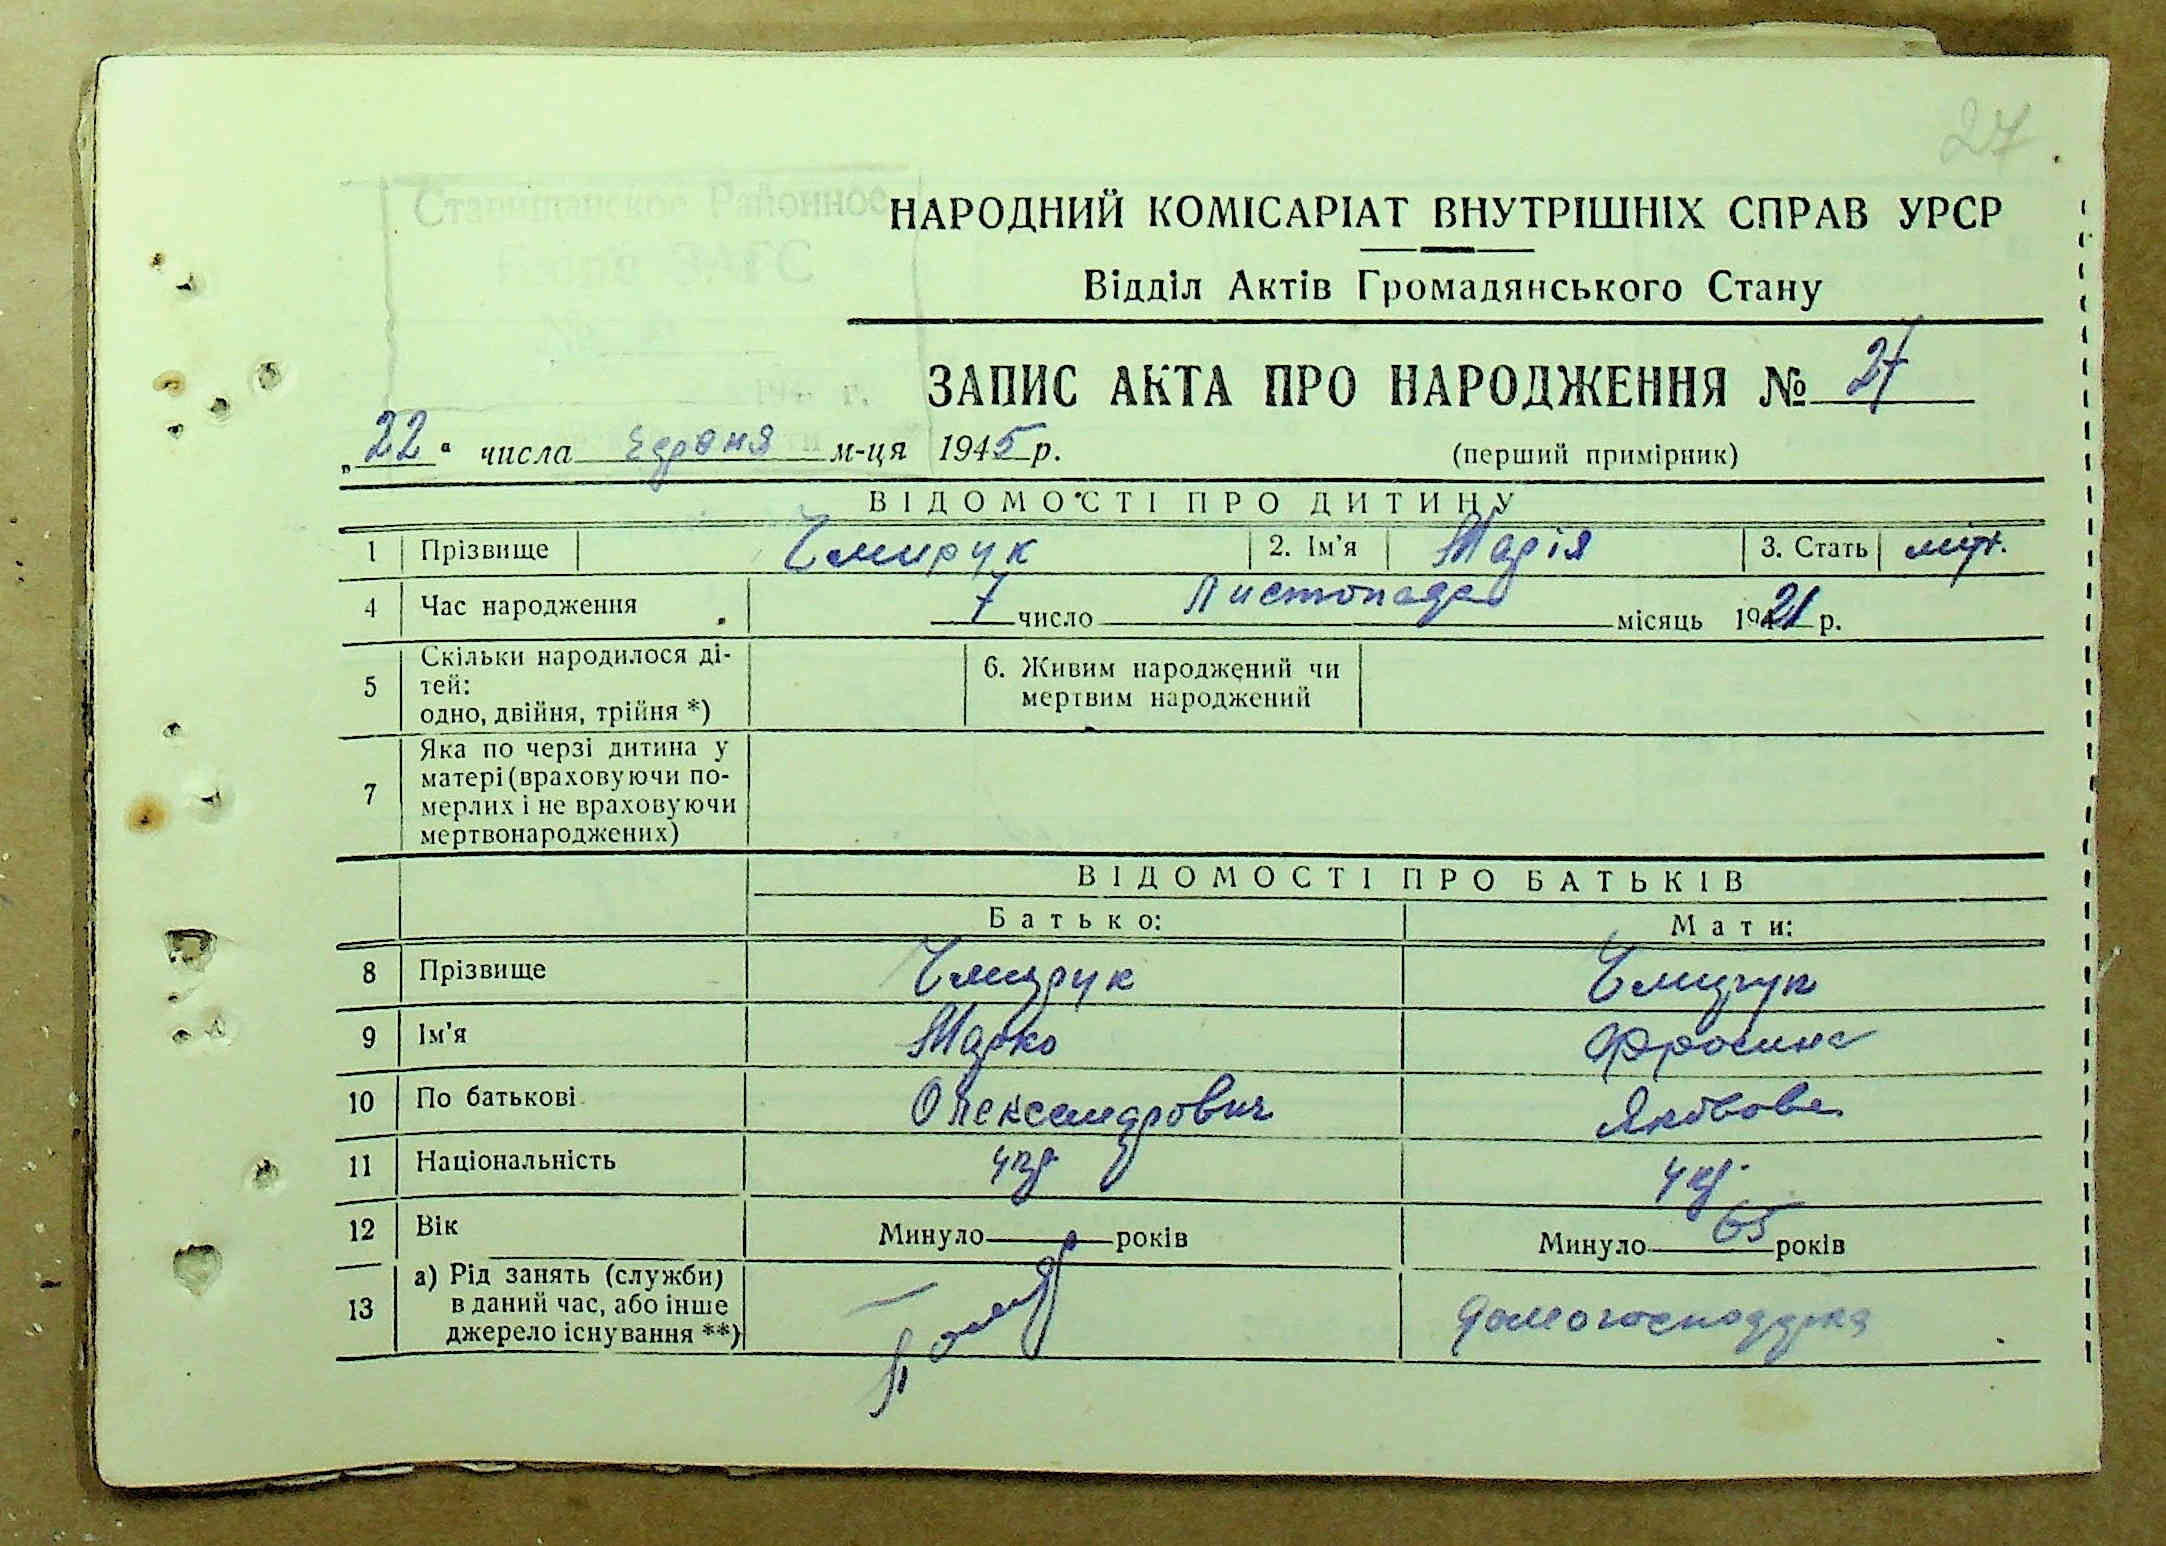 27
Ставищанское Районное
НАРОДНИЙ КОМІСАРІАТ ВНУТРІШНІХ СПРАВ УРСР
Відділ Актів Громадянського Стану
ЗАПИС АКТА ПРО НАРОДЖЕННЯ № 27
„22“ числа м-ця 1945 р. (перший примірник)
ВІДОМОСТІ ПРО ДИТИНУ
1 Прізвище Чмирук 2. Ім'я Марія 3. Стать
4 Час народження 7 число Листопада місяць 1921 р.
5 Скільки народилося ді-
тей:
одно, двійня, трійня *)
6. Живим народжений чи
мертвим народжений
7 Яка по черзі дитина у
матері (враховуючи по-
мерлих і не враховуючи
мертвонароджених)
ВІДОМОСТІ ПРО БАТЬКІВ
Батько: Мати:
8 Прізвище Чмирук Чмирук
9 Ім'я Марко Фросина
10 По батькові Олександрович Яківовна
11 Національність укр укр.
12 Вік Минуло років Минуло 65 років
13 а) Рід занять (служби)
в даний час, або інше
джерело існування **)
помер
домогосподарка